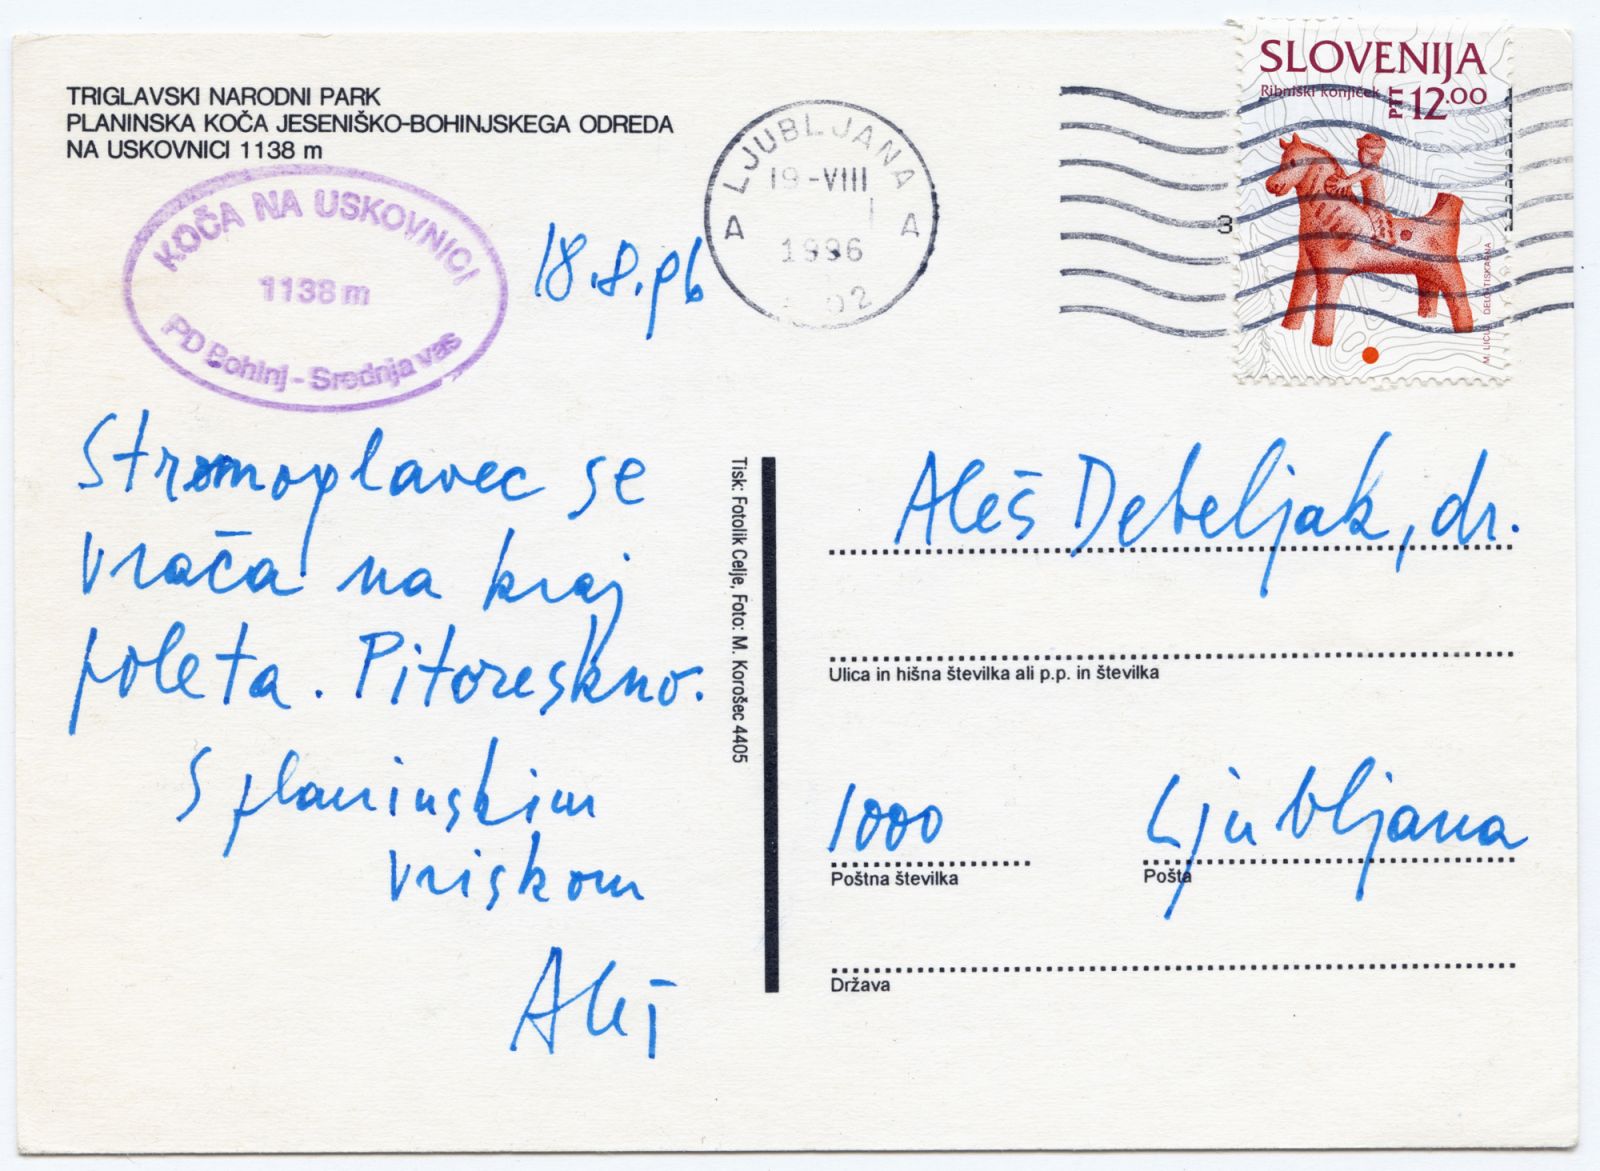 TRIGLAVSKI NARODNI PARK
PLANINSKA KOČA JESENIŠKO-BOHINJSKEGA ODREDA
NA USKOVNICI 1138 m
KOČA NA USKOVNICI
1138 m
PD Bohinj - Srednja vas
18.8.96
LJUBLJANA
19-VIII
A A
1996
02
3
SLOVENIJA
Ribniški konjiček
PTT 12.00
M. LICUL DELO TISKARNA
Stromoglavec se
vrača na kraj
poleta. Pitoreskno.
S planinskim
vriskom
Aleš
Tisk: Fotolik Celje, Foto: M. Korošec 4405
Aleš Debeljak, dr.
Ulica in hišna številka ali p.p. in številka
1000 Ljubljana
Poštna številka Pošta
Država